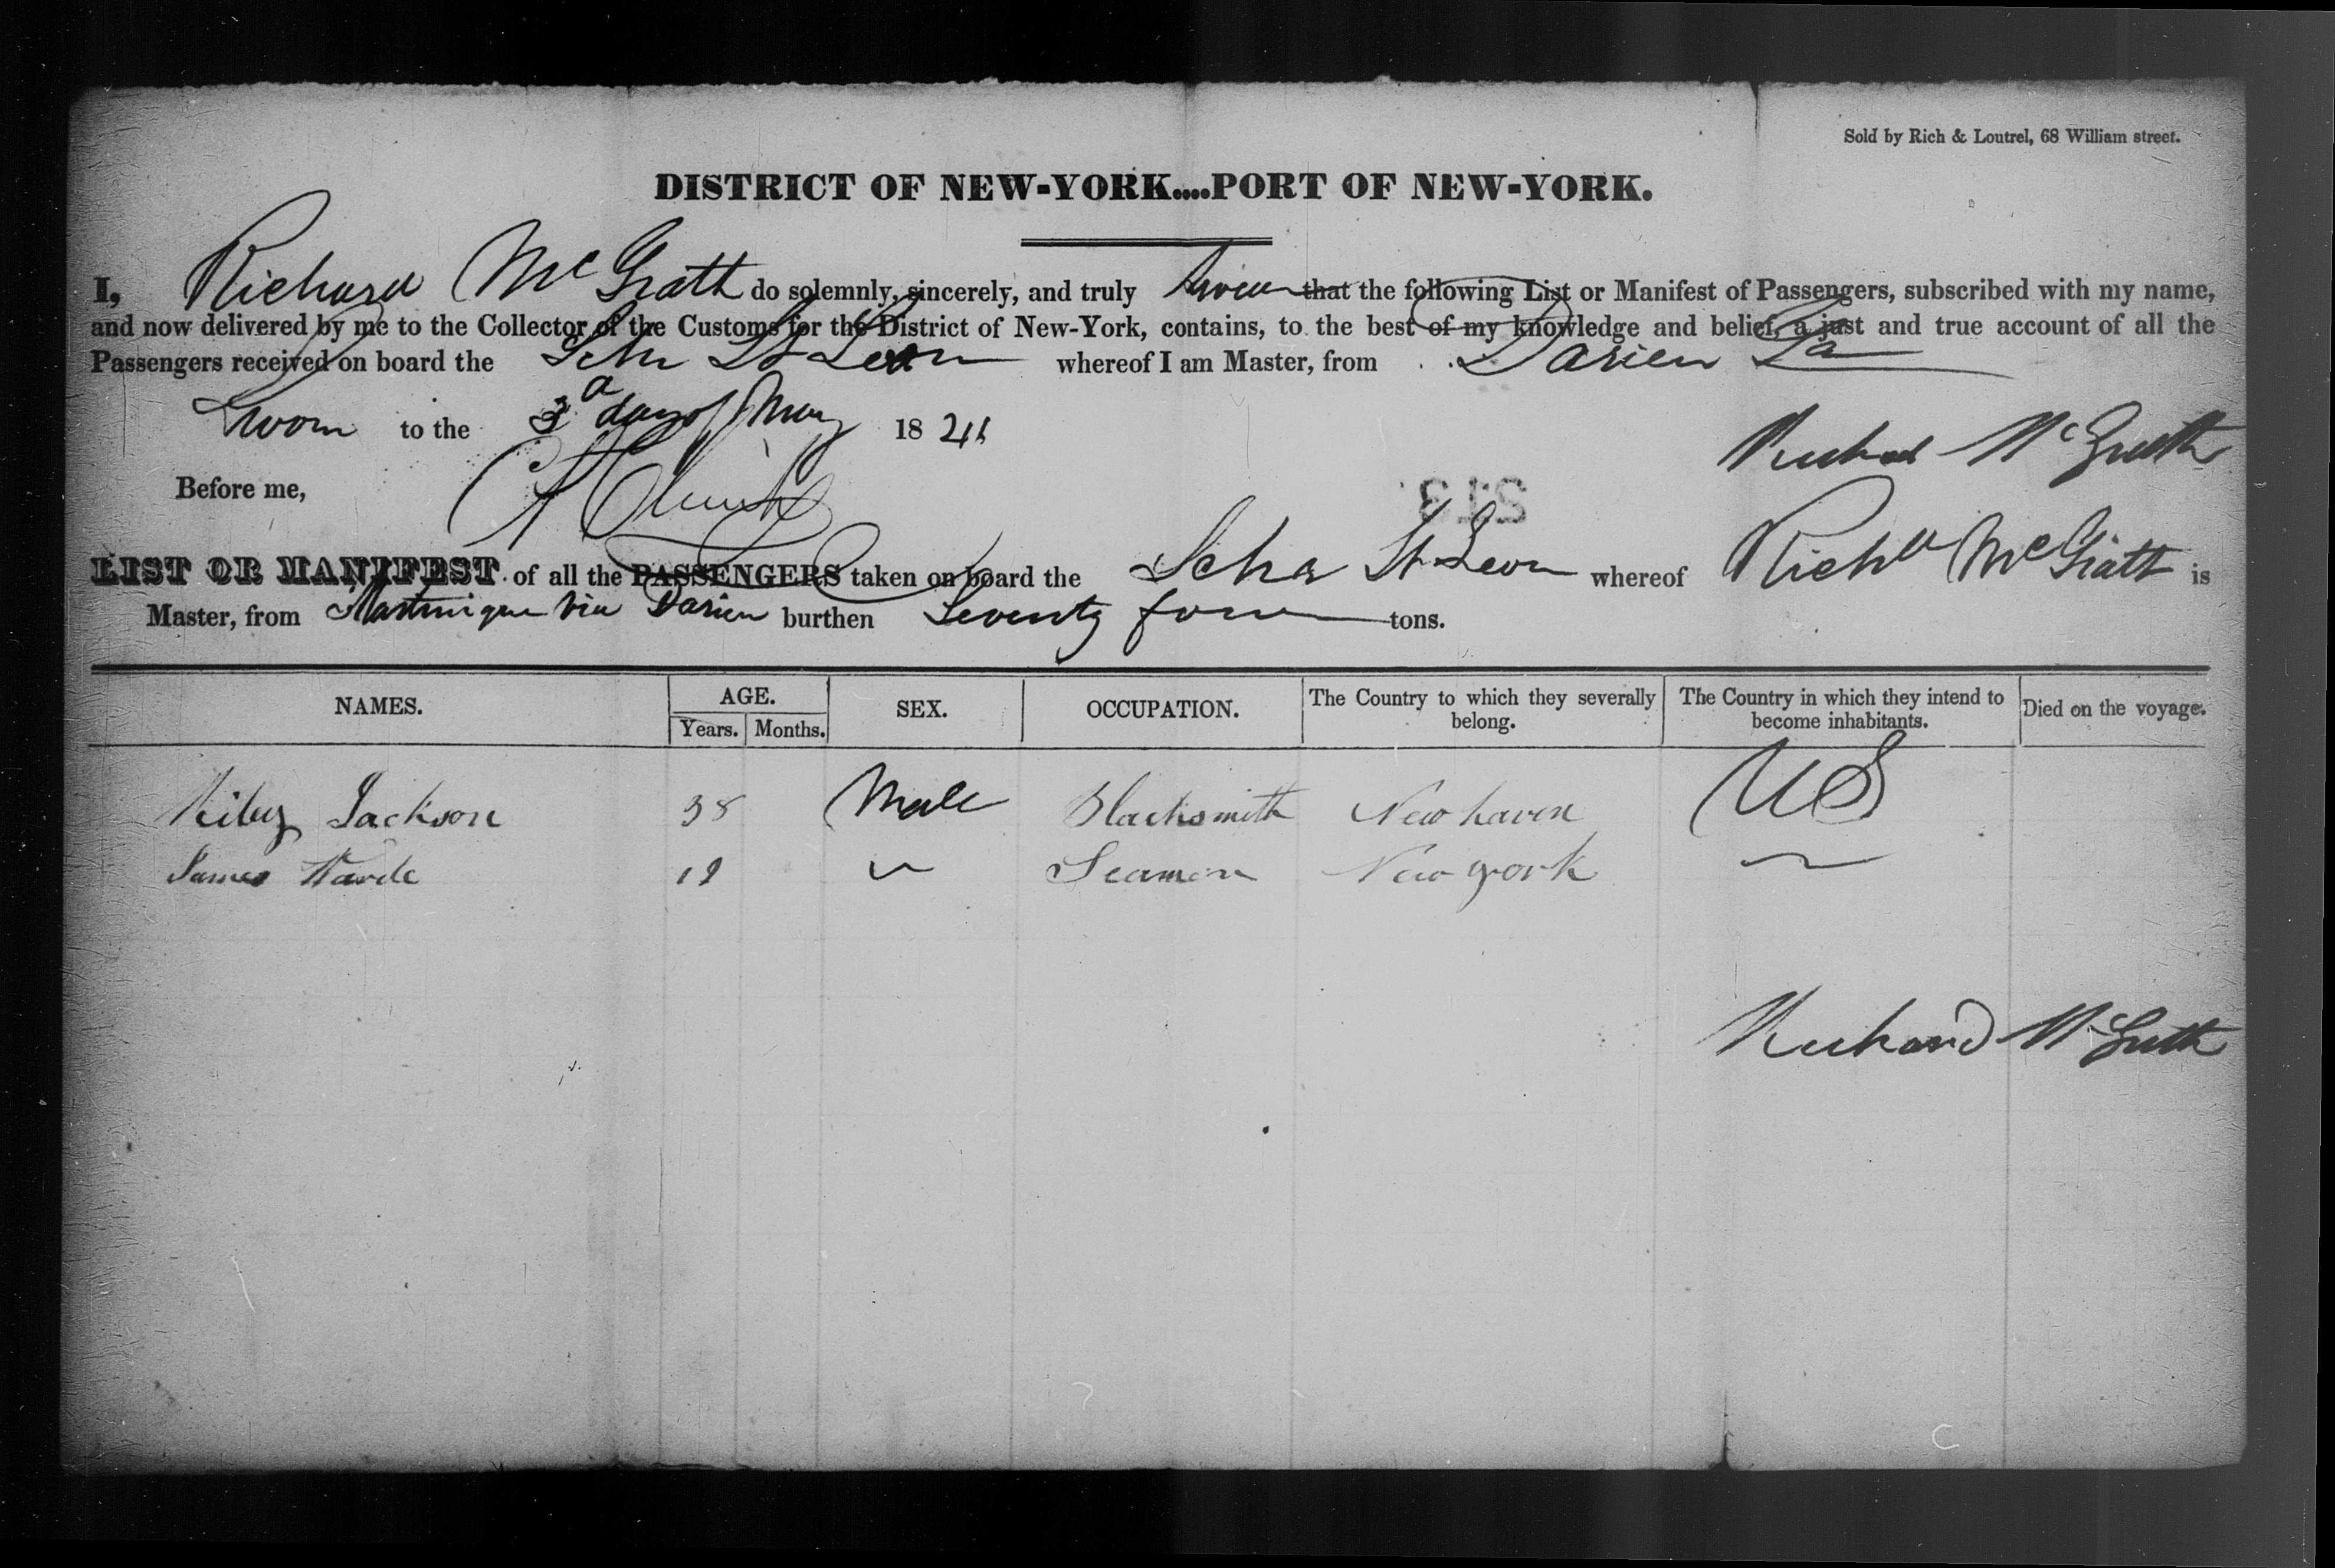 Sold by Rich & Loutrel, 68 William street.
DISTRICT OF NEW-YORK....PORT OF NEW-YORK.
I, Richard McGrath do solemnly, sincerely, and truly swear that the following List or Manifest of Passengers, subscribed with my name,
and now delivered by me to the Collector of the Customs for the District of New-York, contains, to the best of my knowledge and belief, a just and true account of all the
Passengers received on board the Schr St Leon whereof I am Master, from Darien Ga
Sworn to the 3d day of May 184
Richard McGrath
Before me,
LIST OR MANIFEST of all the PASSENGERS taken on board the Schr St Leon whereof Richd McGrath is
Master, from Martinique via Darien burthen Seventy four tons.
NAMES. AGE. SEX. OCCUPATION. The Country to which they severally belong. The Country in which they intend to become inhabitants. Died on the voyage.
Years. Months.
Jackson 38 Male Blacksmith New haven US
James 19 Seaman New york
Richard McGrath